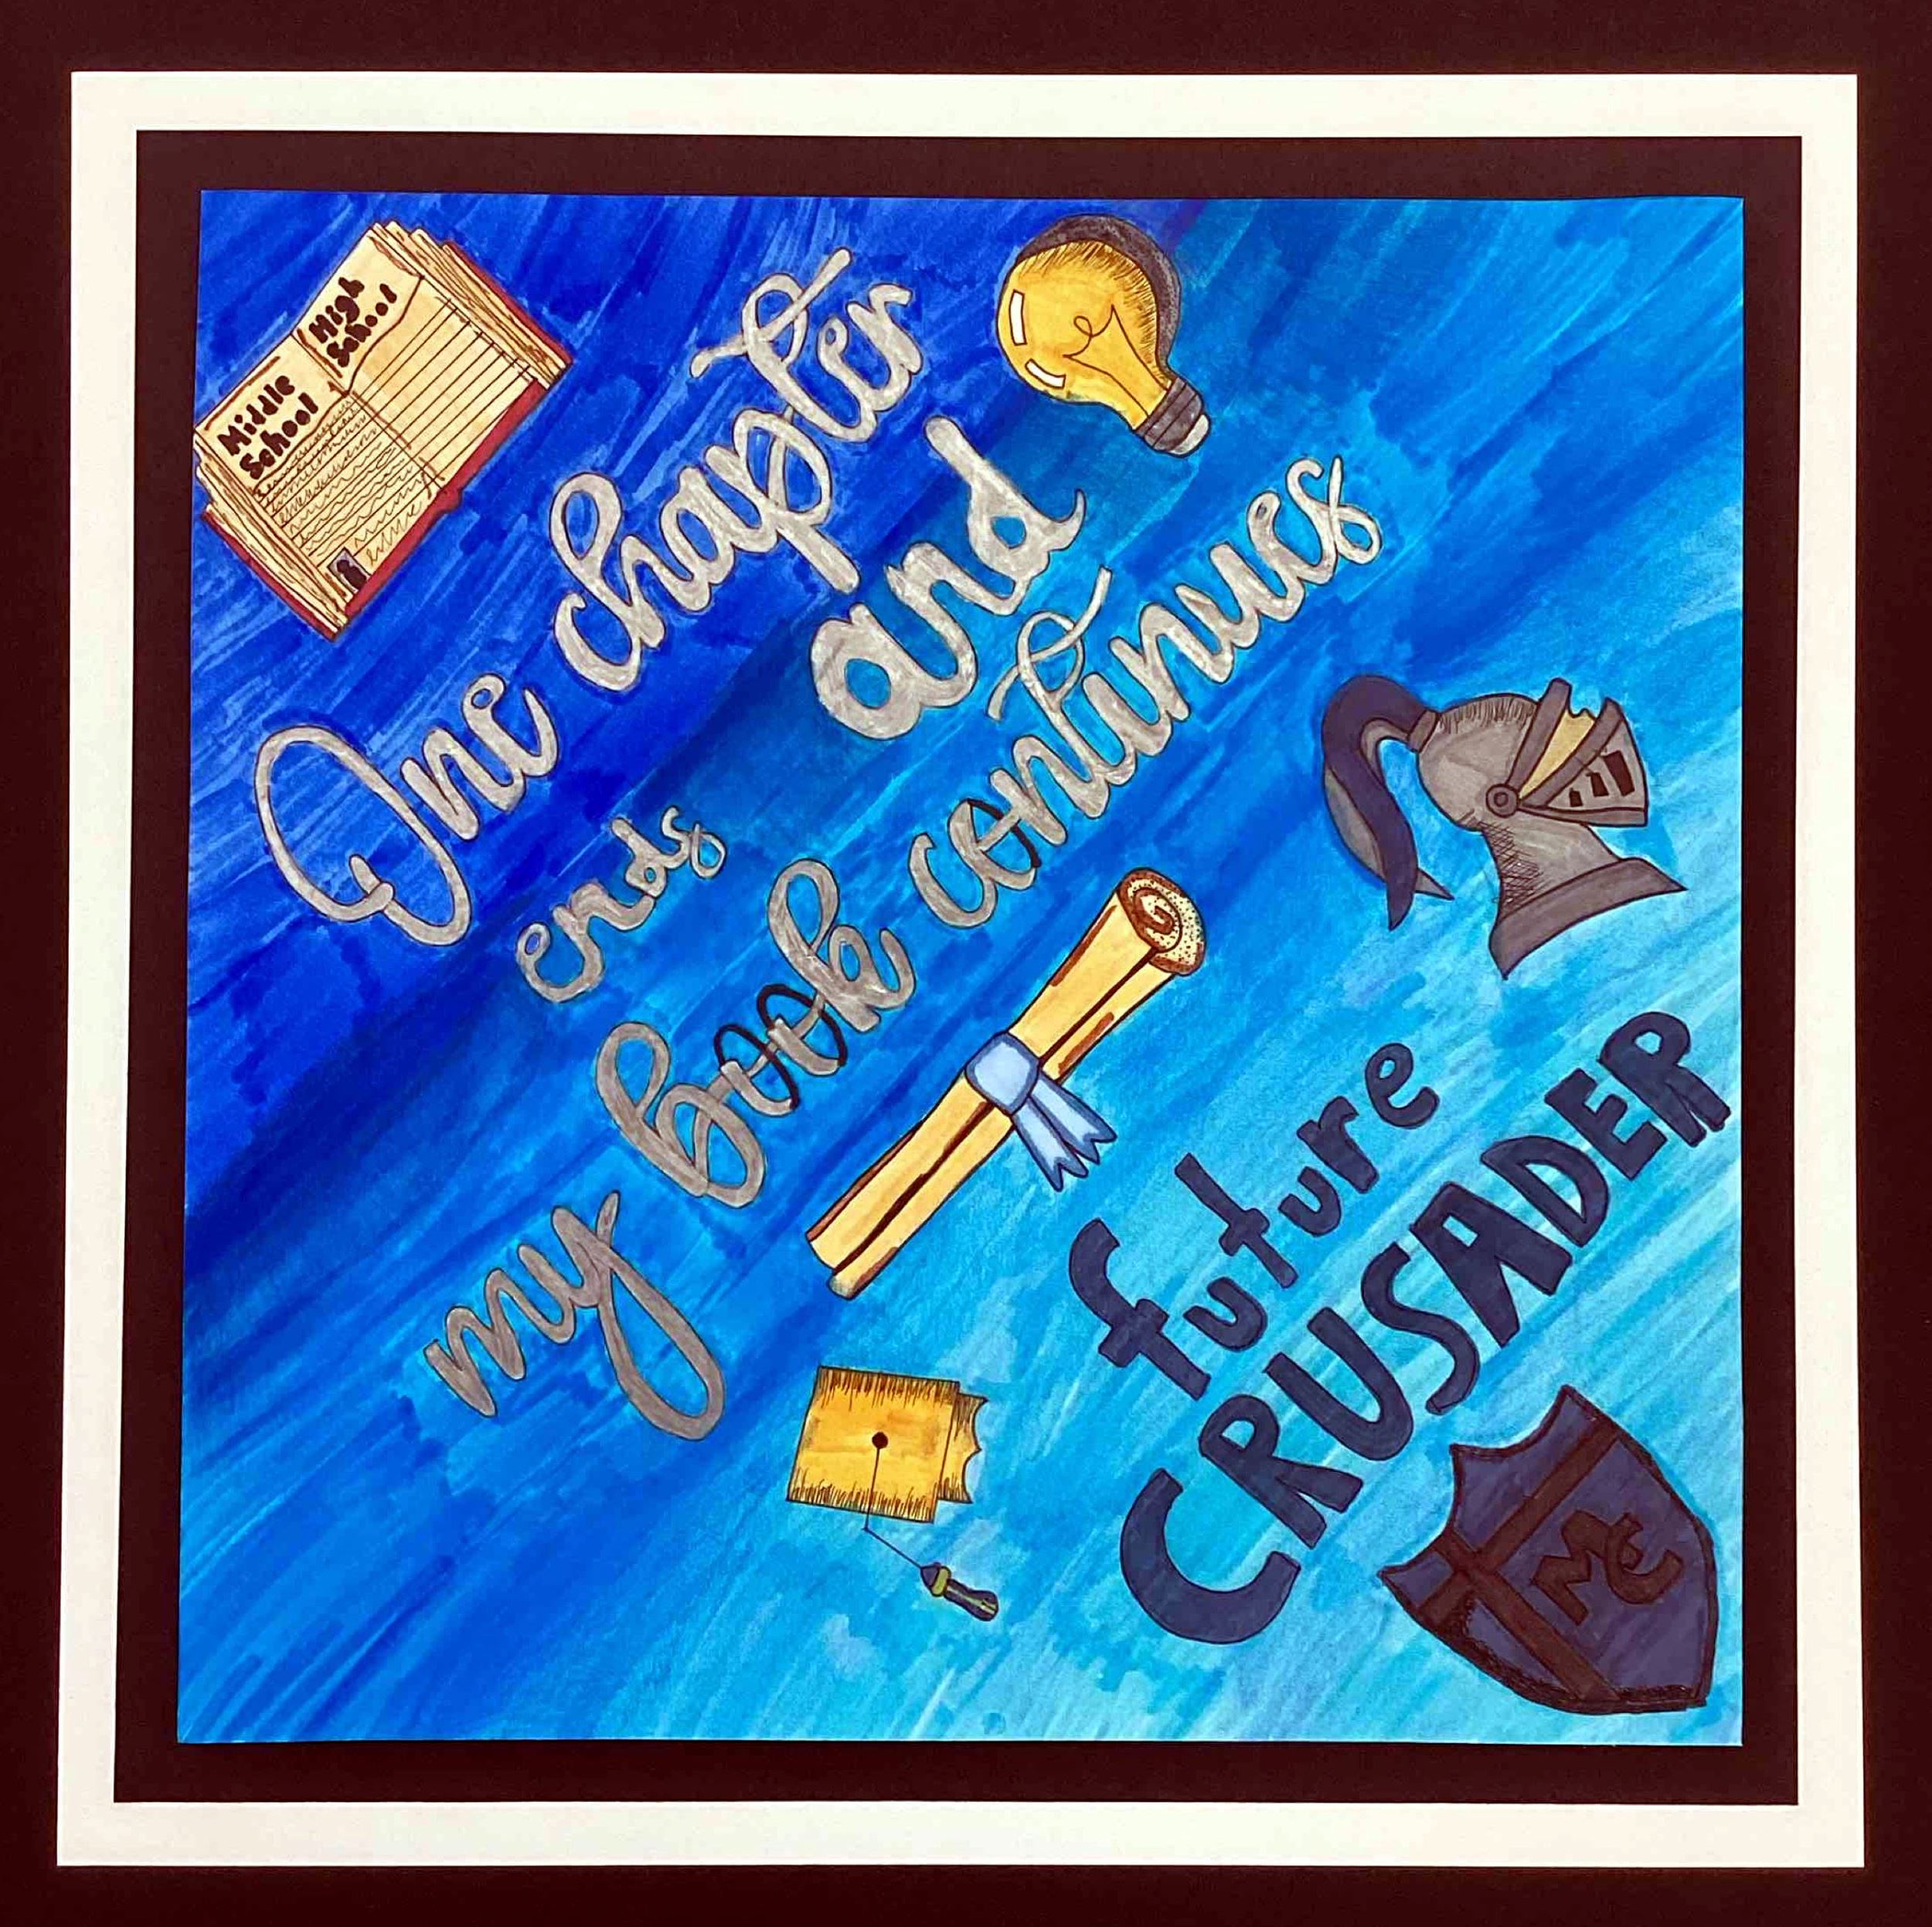 Middle
School
High
School
One chapter
ends and
my book continues
future
CRUSADER
MC